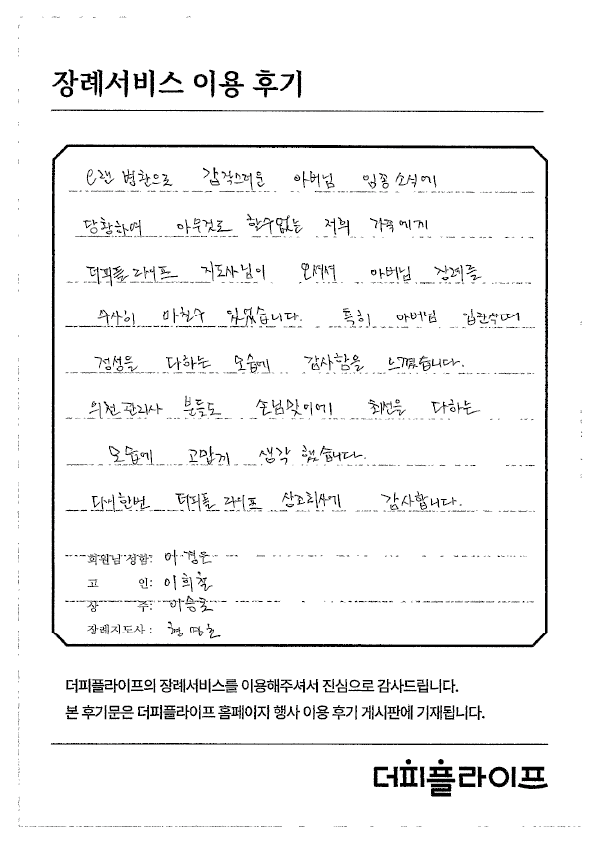 장례서비스 이용 후기
오랜 병환으로 갑작스러운 아버님 임종소식에
당황하여 아무것도 할수없는 저희 가족에게
더피플 라이프 지도사님이 오셔서 아버님 장례를
무사히 마칠수 있었습니다. 특히 아버님 입관식때
정성을 다하는 모습에 감사함을 느꼈습니다.
의전관리사 분들도 손님맞이에 최선을 다하는
모습에 고맙게 생각 했습니다.
다시한번 더피플 라이프 상조회사에 감사합니다.
회원님 성함:
고 인: 이희철
상 주: 이승호
장례지도사:
더피플라이프의 장례서비스를 이용해주셔서 진심으로 감사드립니다.
본 후기문은 더피플라이프 홈페이지 행사 이용 후기 게시판에 기재됩니다.
더피플라이프